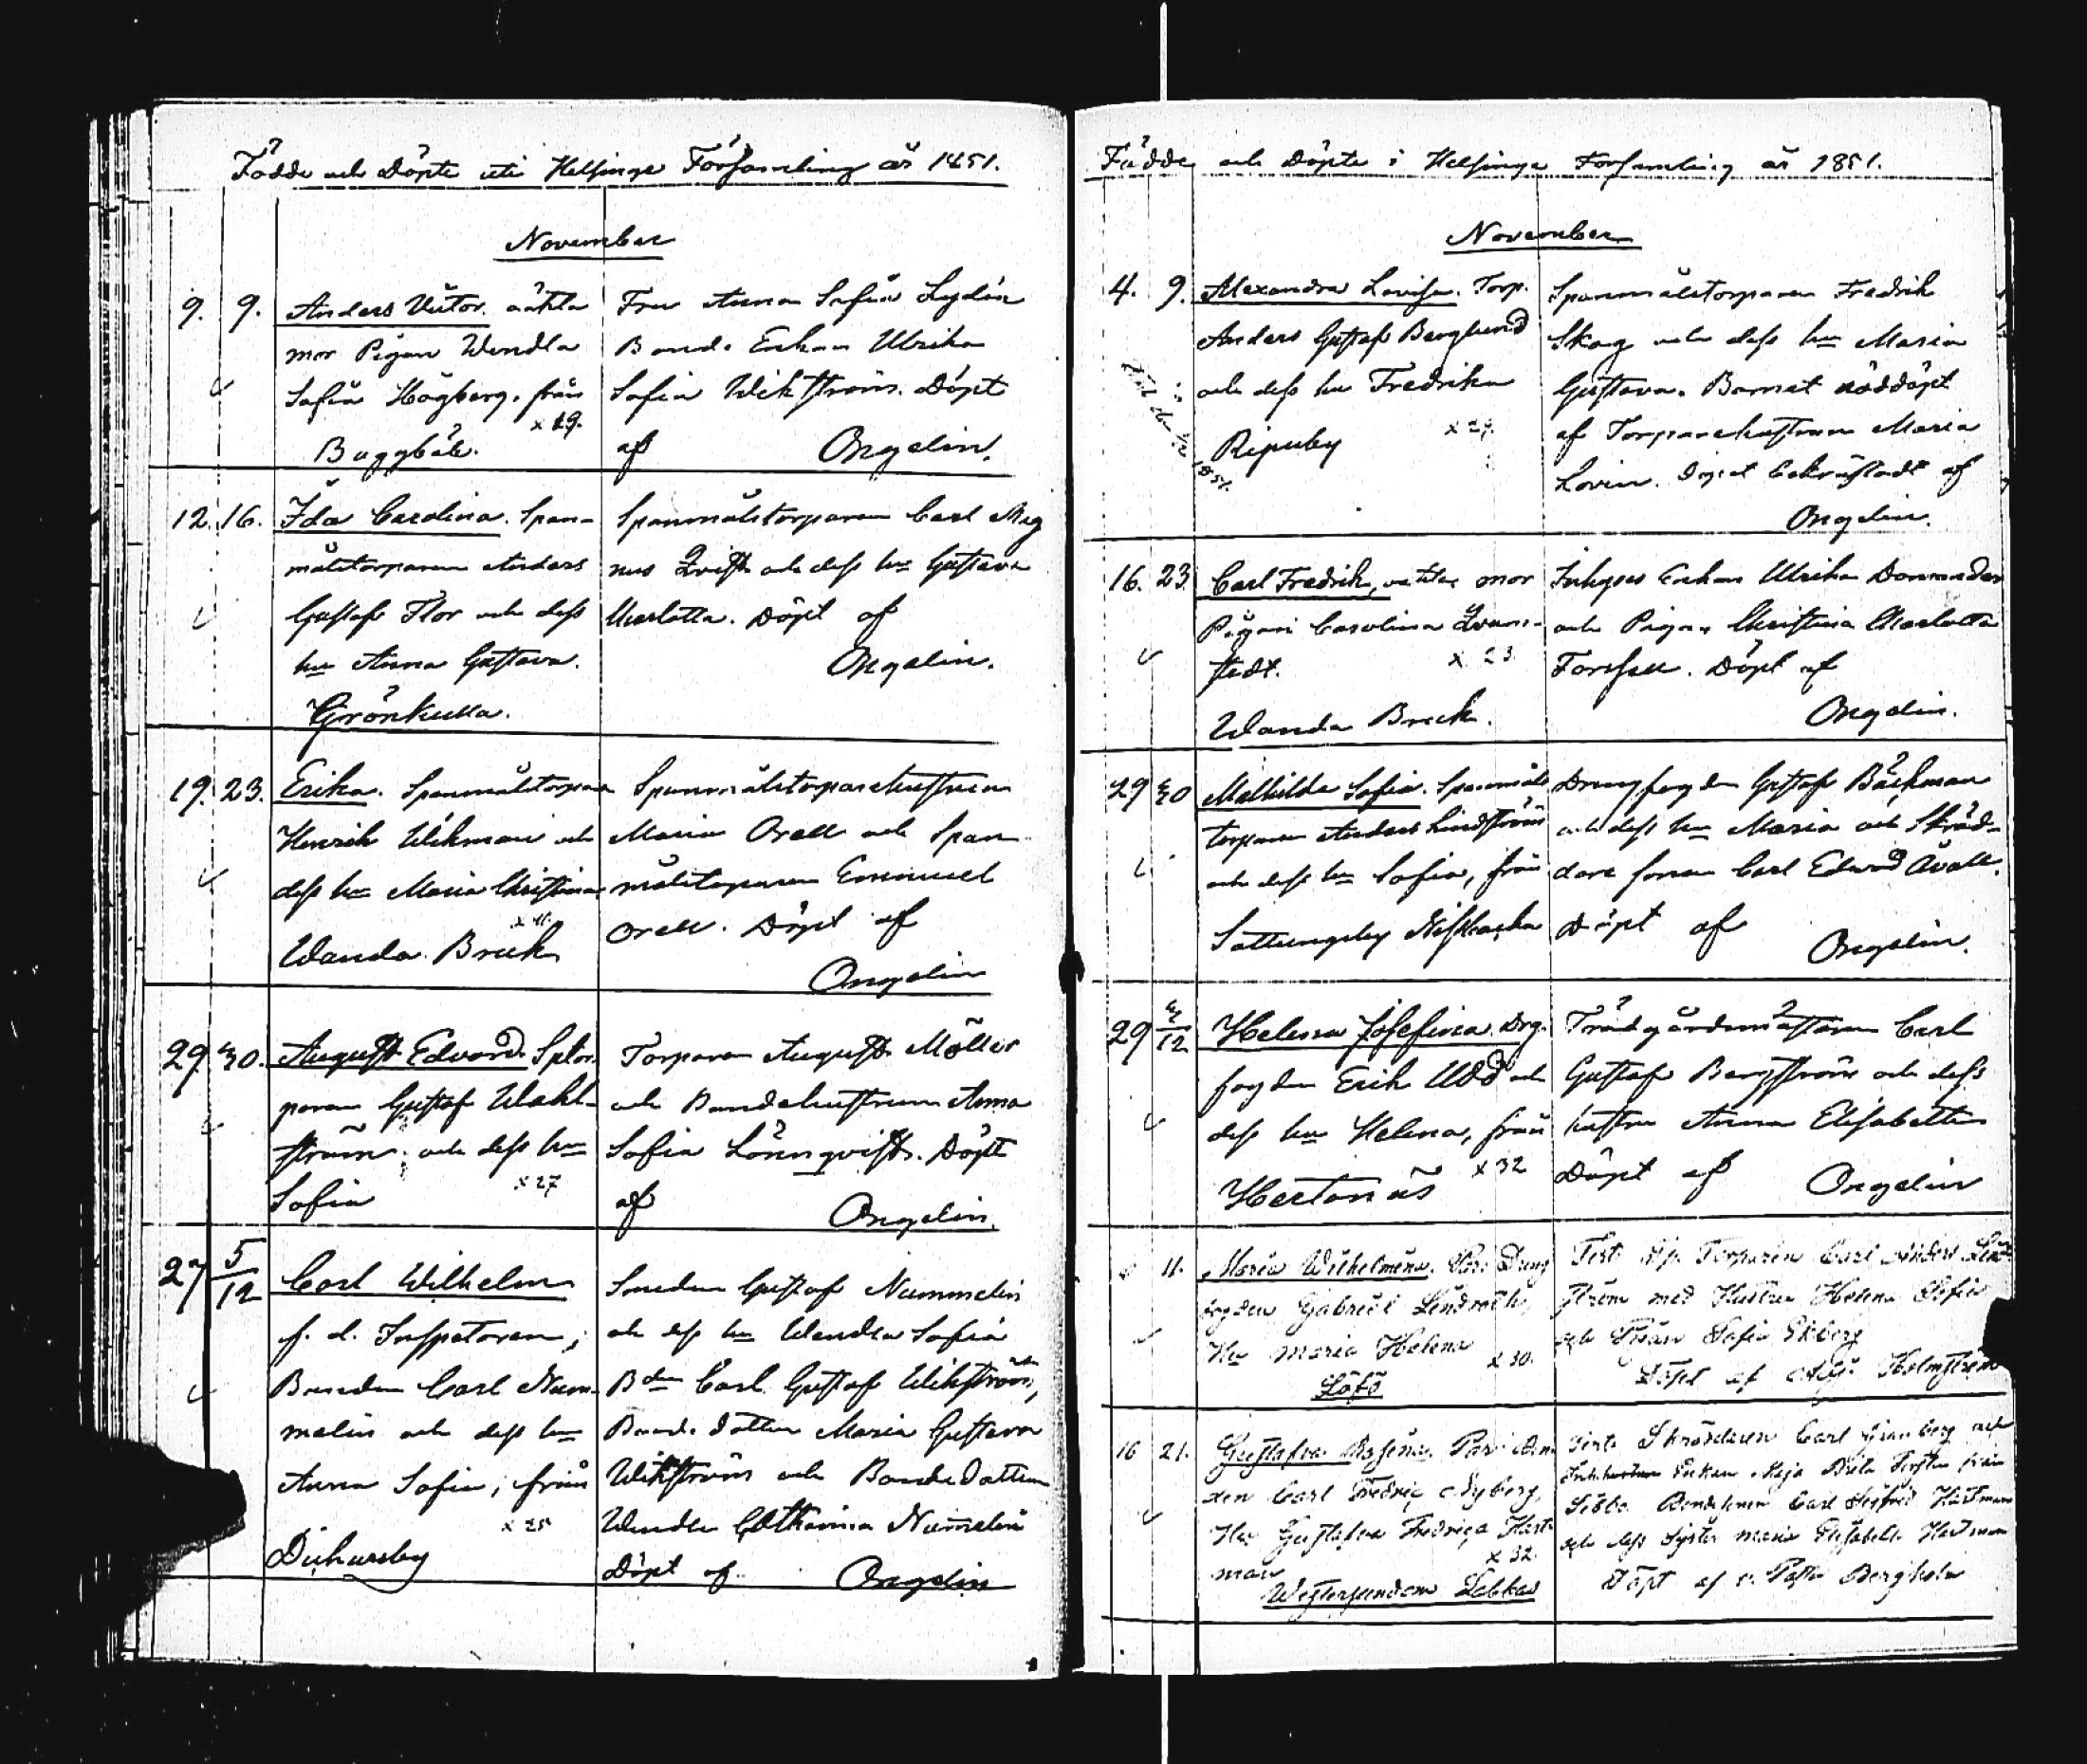 Födde och Döpte uti Helsinge Församling år 1851.
November
9. 9. Anders Victor. oäkta
mor Pigan Wendla
Sofia Högberg, från
x 29.
Baggböle.
Fru Anna Sofia Lydén
Bonde Enkan Ulrika
Sofia Wikström. Döpt
af Ongelin.
12. 16. Ida Carolina. Span-
målstorparen Anders
Gustaf Flor och dess
hu Anna Gustava.
Grönkulla.
Spanmålstorparen Carl Mag
nus Qvist och dess hu Gustava
Charlotta. Döpt af
Ongelin.
19. 23. Erika. Spanmålstorparen
Henrik Wikman och
dess hu Maria Christina
x 41.
Wanda Bruk
Spanmålstorparehustrun
Maria Orell och Span
målstorparen Emanuel
Orell. Döpt af
Ongelin
29. 30. August Edvard. Sptor
paren Gustaf Wahl-
ström och dess hu
Sofia x 27
Torparen August Möller
och Bondehustrun Anna
Sofia Lönnqvist. Döpt
af Ongelin.
27 5/12 Carl Wilhelm
f. d. Inspetoren,
Bonden Carl Num-
melin och dess hu
Anna Sofia, från
x 25
Dickursby
Smeden Gustaf Nummelin
och dess hu Wendla Sofia
Bdn Carl Gustaf Wikström,
Bonde dottern Maria Gustava
Wikström och Bonde dottern
Wendla Catharina Nummelin
Döpt af Ongelin
Födde och Döpte i Helsinge Församling år 1851.
November
4. 9. Alexandra Lovisa. Torp.
Anders Gustaf Berglund
och dess hu Fredrika
x 27.
Ripuby
1851.
Spanmålstorparen Fredrik
Skog och dess hu Maria
Gustava. Barnet nöddöpt
af Torparehustrun Maria
Lovin. Dopet bekräftadt af
Ongelin.
16. 23. Carl Fredrik, oäkta, mor
Pigan Carolina Qvarn-
stedt. x 23.
Wanda Bruk.
Inhyses Enkan Ulrika Dommander
och Pigan Christina Charlotta
Forssell. Döpt af
Ongelin.
29 30 Mathilda Sofia. Spanmåls
torparen Anders Lindström
och dess hu Sofia, från
Sottungsby Nissbacka
Drengfogden Gustaf Bäckman
och dess hu Maria och Skräd-
dare sonen Carl Edward Avall.
Döpt af
Ongelin.
29 2/12 Helena Josefina. Drg.
fogden Erik Udd och
dess hu Helena, från
x 32
Hertonäs
Trädgårdsmästaren Carl
Gustaf Bergström och dess
hustru Anna Elisabeth
Döpt af Ongelin
11. Maria Wilhelmina. Par. Dreng
fogden Gabriel Lindroth,
Hu Maria Helena
x 30.
Löfö
Test. Sp. Torparen Carl Anders Lind
ström med Hustru Helena Sofia
och Pigan Sofia Ekberg
Döpt af Adj. Holmström
16 21. Gustafva Rosina. Par.
Carl Fredric Nyberg,
Hu Gustafva Fredrica Hart-
man x 32.
Westersundom Labbas
Test. Skräddaren Carl Granberg och
Enkan Maja Brita från
Sibbo Bondesonen Carl Sigfrid Hartman
och dess Syster Maria Elisabeth Hartman
Döpt af v. Past. Bergholm